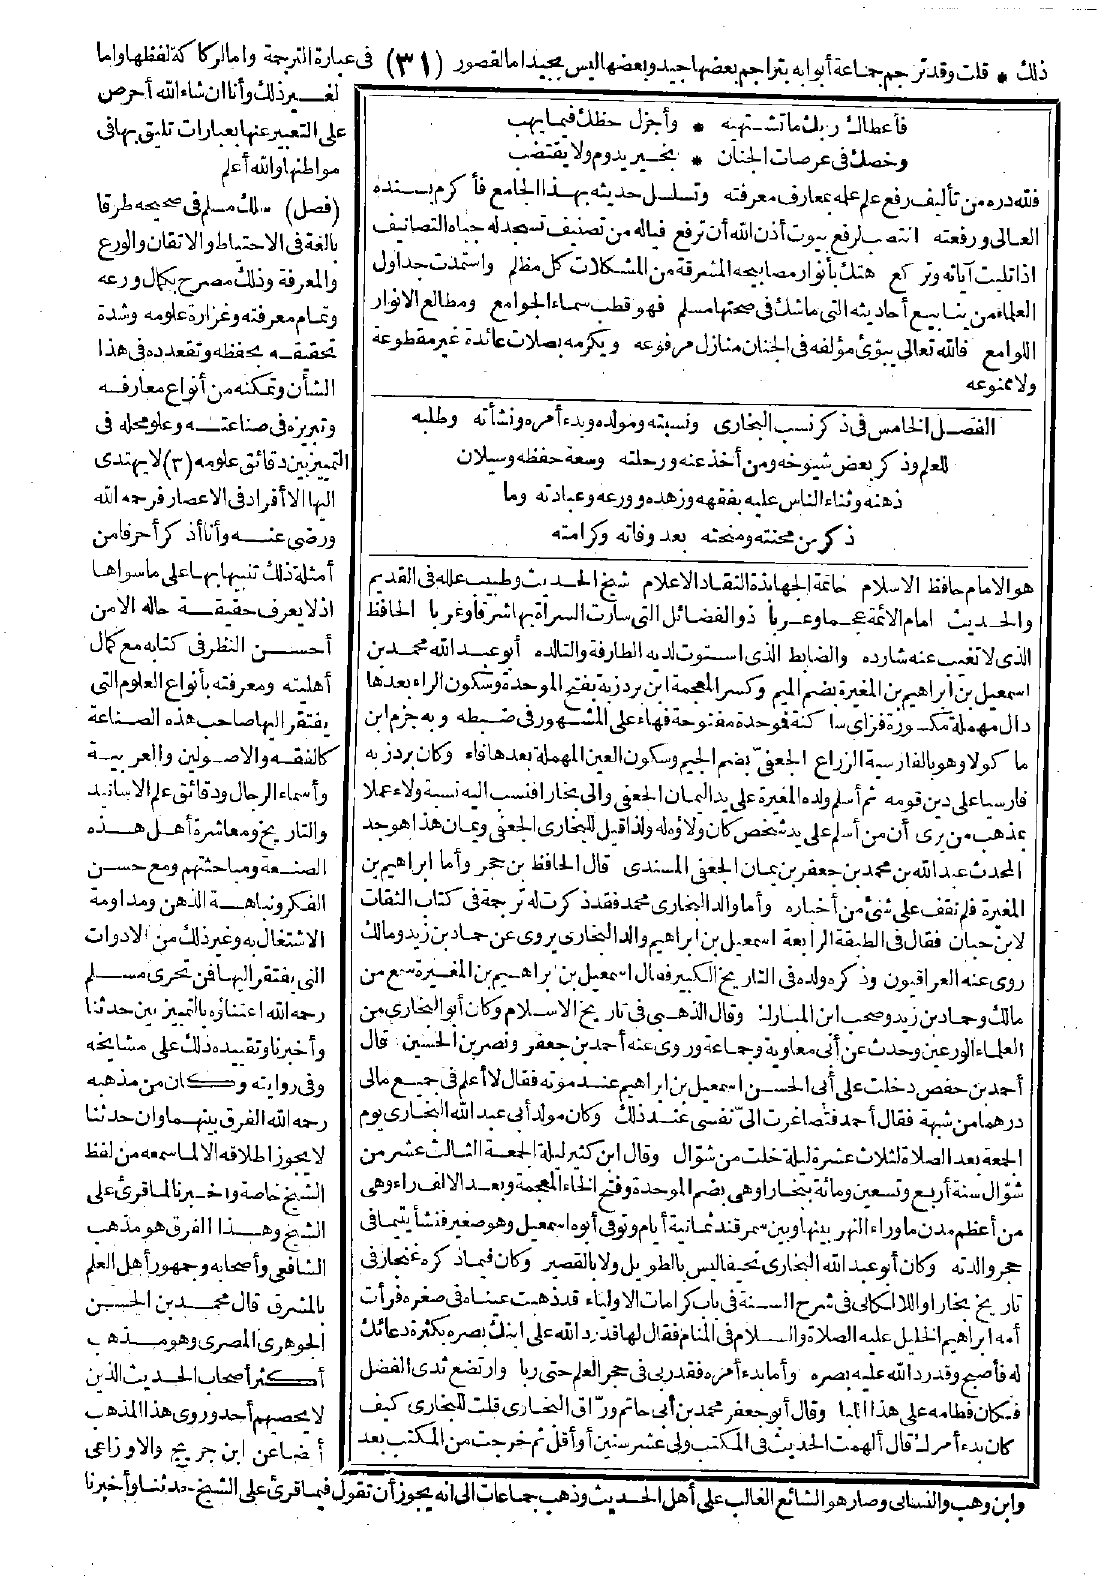 ذلك * قلت وقد ترجم جماعة أبوابه بتراجم بعضها جيد وبعضها ليس بجيد اما لقصور (٣١) فى عبارة الترجمة واما لركاكة لفظها واما
لغير ذلك وأنا ان شاء الله أحرص
على التعبير عنها بعبارات تليق بها فى
مواطنها والله أعلم
(فصل) سلك مسلم فى صحيحه طرقا
بالغة فى الاحتياط والاتقان والورع
والمعرفة وذلك مصرح بكمال ورعه
وتمام معرفته وغزارة علومه وشدة
تحقيقه بحفظه وتقعدده فى هذا
الشأن وتمكنه من أنواع معارفه
وتبريزه فى صناعته وعلو محله فى
التمييز بين دقائق علومه (٣) لا يهتدى
اليها الا أفراد فى الاعصار فرحمه الله
ورضى عنه وأنا أذكر أحرفا من
أمثلة ذلك تنبيها بها على ما سواها
اذ لا يعرف حقيقة حاله الا من
أحسن النظر فى كتابه مع كمال
أهليته ومعرفته بأنواع العلوم التى
يفتقر اليها صاحب هذه الصناعة
كالفقه والاصولين والعربية
وأسماء الرجال ودقائق علم الاسانيد
والتاريخ ومعاشرة أهل هذه
الصنعة ومباحثتهم ومع حسن
الفكر ونباهة الذهن ومداومة
الاشتغال به وغير ذلك من الادوات
التى يفتقر اليها فن تحرى مسلم
رحمه الله اعتناؤه بالتمييز بين حدثنا
وأخبرنا وتقييده ذلك على مشايخه
وفى روايته وكان من مذهبه
رحمه الله الفرق بينهما وان حدثنا
لا يجوز اطلاقه الا لما سمعه من لفظ
الشيخ خاصة وأخبرنا لما قرئ على
الشيخ وهذا الفرق هو مذهب
الشافعى وأصحابه وجمهور أهل العلم
بالمشرق قال محمد بن الحسن
الجوهرى المصرى وهو مذهب
أكثر أصحاب الحديث الذين
لا يحصيهم أحد وروى هذا المذهب
أيضا عن ابن جريج والاوزاعى
فأعطاك ربك ما تشتهيه * وأجزل حظك فيما يهب
وخصك فى عرصات الجنان * بخير يدوم ولا يقتضب
فلله دره من تأليف رفع علم علمه بمعارف معرفته وتسلسل حديثه بهذا الجامع فأكرم بسنده
العالى ورفعته انتصب لرفع بيوت أذن الله أن ترفع فياله من تصنيف تسجد له جباه التصانيف
اذا تليت آياته وتركع هتك بأنوار مصابيحه المشرقة من المشكلات كل مظلم واستمدت جداول
العلماء من ينابيع أحاديثه التى ما شك فى صحتها مسلم فهو قطب سماء الجوامع ومطالع الانوار
اللوامع فالله تعالى يبوّئ مؤلفه فى الجنان منازل مرفوعه ويكرمه بصلات عائدة غير مقطوعة
ولا ممنوعه
الفصل الخامس فى ذكر نسب البخارى ونسبته ومولده وبدء أمره ونشأته وطلبه
للعلم وذكر بعض شيوخه ومن أخذ عنه ورحلته وسعة حفظه وسيلان
ذهنه وثناء الناس عليه بفقهه وزهده وورعه وعبادته وما
ذكر من محنته ومنحته بعد وفاته وكرامته
هو الامام حافظ الاسلام خاتمة الجهابذة النقاد الاعلام شيخ الحديث وطبيب علله فى القديم
والحديث امام الائمة عجما وعربا ذو الفضائل التى سارت السراة بها شرقا وغربا الحافظ
الذى لا تغيب عنه شارده والضابط الذى استوت لديه الطارفة والتالده أبو عبد الله محمد بن
اسمعيل بن ابراهيم بن المغيرة بضم الميم وكسر المعجمة ابن بردزبة بفتح الموحدة وسكون الراء بعدها
دال مهملة مكسورة فزاى ساكنة فوحدة مفتوحة فهاء على المشهور فى ضبطه وبه جزم ابن
ماكولا وهو بالفارسية الزراع الجعفىّ بضم الجيم وسكون العين المهملة بعدها فاء وكان بردزبه
فارسيا على دين قومه ثم أسلم ولده المغيرة على يد اليمان الجعفى والى بخارا فنسب اليه نسبة ولاء عملا
بمذهب من يرى أن من أسلم على يد شخص كان ولاؤه له ولذا قيل للبخارى الجعفى ويمان هذا هو جد
المحدث عبد الله بن محمد بن جعفر بن يمان الجعفى المسندى قال الحافظ بن حجر وأما ابراهيم بن
المغيرة فلم نقف على شئ من أخباره وأما والد البخارى محمد فقد ذكرت له ترجمة فى كتاب الثقات
لابن حبان فقال فى الطبقة الرابعة اسمعيل بن ابراهيم والد البخارى يروى عن حماد بن زيد ومالك
روى عنه العراقيون وذكره ولده فى التاريخ الكبير فقال اسمعيل بن ابراهيم بن المغيرة سمع من
مالك وحماد بن زيد وصحب ابن المبارك وقال الذهبى فى تاريخ الاسلام وكان أبو البخارى من
العلماء الورعين وحدث عن أبى معاوية وجماعة وروى عنه أحمد بن جعفر ونصر بن الحسين قال
أحمد بن حفص دخلت على أبى الحسن اسمعيل بن ابراهيم عند موته فقال لا أعلم فى جميع مالى
درهما من شبهة فقال أحمد فتصاغرت الىّ نفسى عند ذلك وكان مولد أبى عبد الله البخارى يوم
الجمعة بعد الصلاة لثلاث عشرة ليلة خلت من شوّال وقال ابن كثير ليلة الجمعة الثالث عشر من
شوّال سنة أربع وتسعين ومائة ببخارا وهى بضم الموحدة وفتح الخاء المعجمة وبعد الالف راء وهى
من أعظم مدن ما وراء النهر بينها وبين سمرقند ثمانية أيام وتوفى أبوه اسمعيل وهو صغير فنشأ يتيما فى
حجر والدته وكان أبو عبد الله البخارى نحيفا ليس بالطويل ولا بالقصير وكان فيما ذكره غنجار فى
تاريخ بخارا واللالكائى فى شرح السنة فى باب كرامات الاولياء قد ذهبت عيناه فى صغره فرأت
أمه ابراهيم الخليل عليه الصلاة والسلام فى المنام فقال لها قد رد الله على ابنك بصره بكثرة دعائك
له فأصبح وقد رد الله عليه بصره وأما بدء أمره فقد ربى فى حجر العلم حتى ربا وارتضع ثدى الفضل
فكان فطامه على هذا اللبا وقال أبو جعفر محمد بن أبى حاتم ورّاق البخارى قلت للبخارى كيف
كان بدء أمرك قال ألهمت الحديث فى المكتب ولى عشر سنين أو أقل ثم خرجت من المكتب بعد
وابن وهب والنسائى وصار هو الشائع الغالب على أهل الحديث وذهب جماعات الى انه يجوز أن تقول فيما قرئ على الشيخ حدثنا وأخبرنا